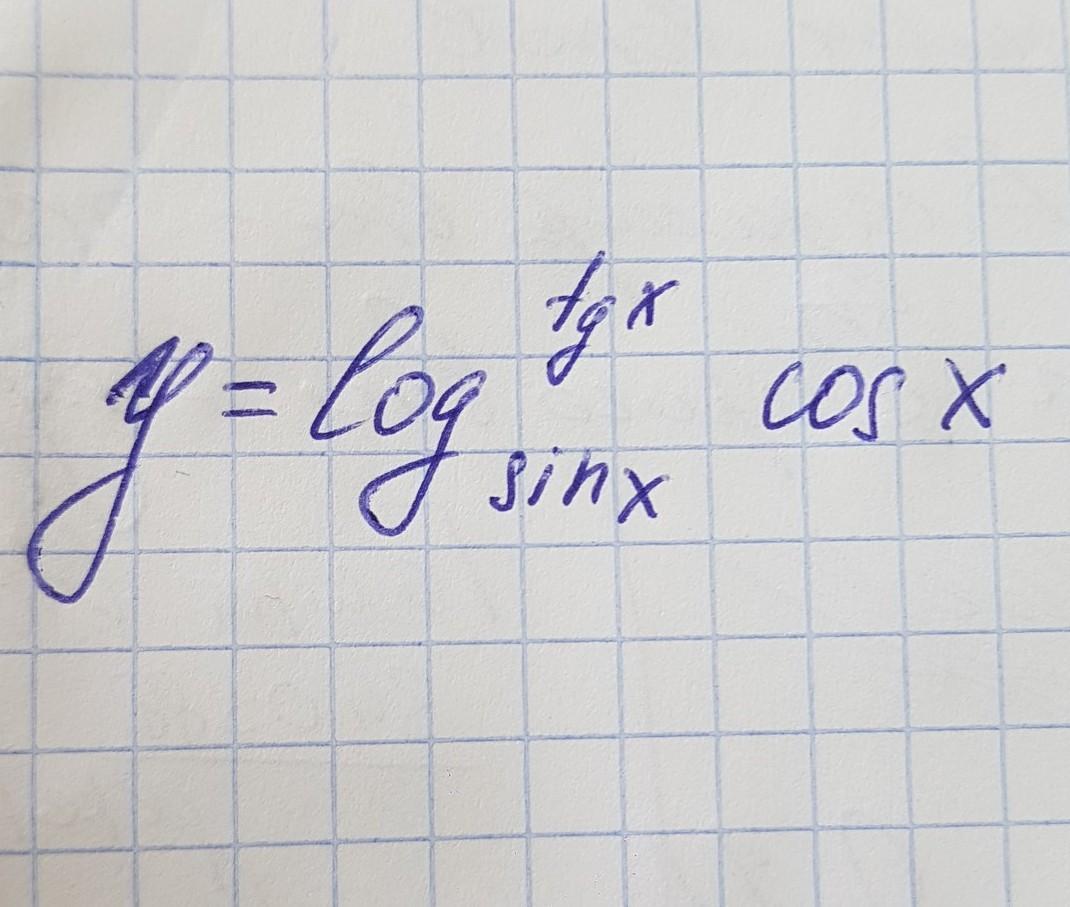 y = log_{sin x}^{tg x} cos x